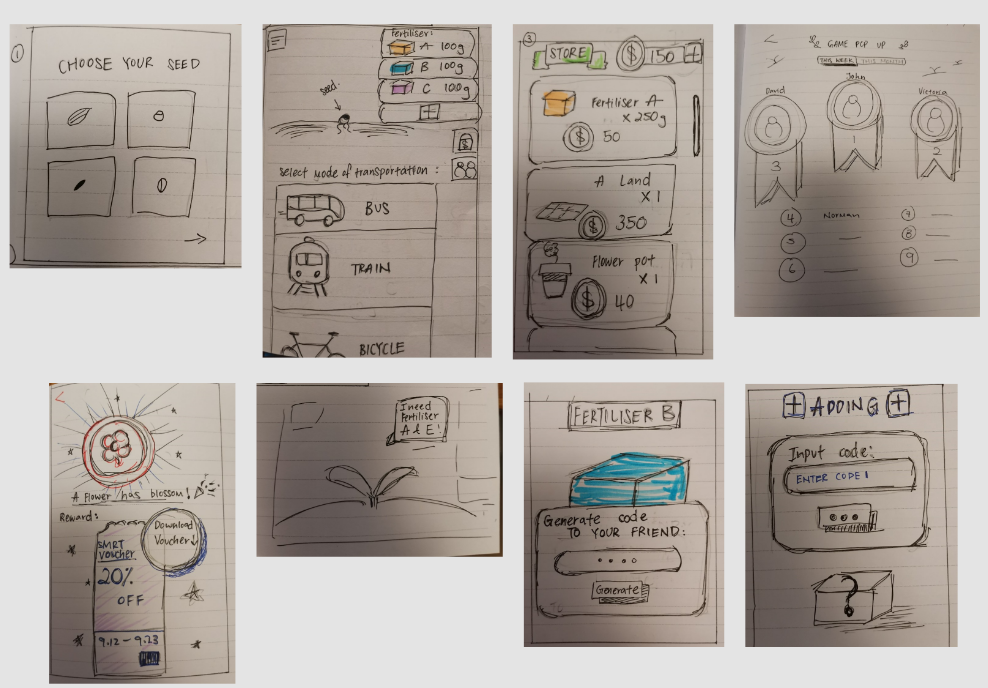 1
CHOOSE YOUR SEED
Fertiliser:
A 100g
B 100g
C 100g
seed
Select mode of transportation:
BUS
TRAIN
BICYCLE
3
STORE
$ 150 +
Fertiliser A
X 250g
$ 50
A Land
X 1
$ 350
Flower pot
X 1
$ 40
GAME POP UP
THIS WEEK THIS MONTH
John
David
Victoria
1
3
2
4 Norman
5
6
7
8
9
A flower has blossom!
Reward:
Download
Voucher↓
SMRT
Voucher
20%
OFF
9.12 - 9.23
I need
Fertiliser
A & E!
FERTILISER B
Generate code
TO YOUR FRIEND:
Generate
+ ADDING +
Input code:
ENTER CODE
?